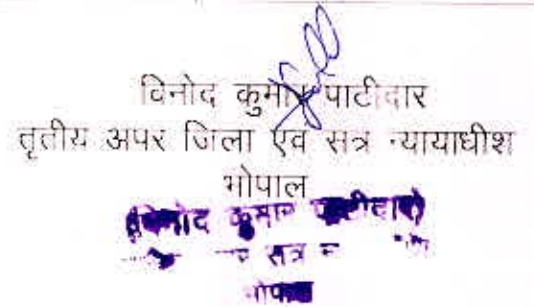 विनोद कुमार पाटीदार
तृतीय अपर जिला एव सत्र न्यायाधीश
भोपाल
(विनोद कुमार पाटीदार)
सत्र
भोपाल